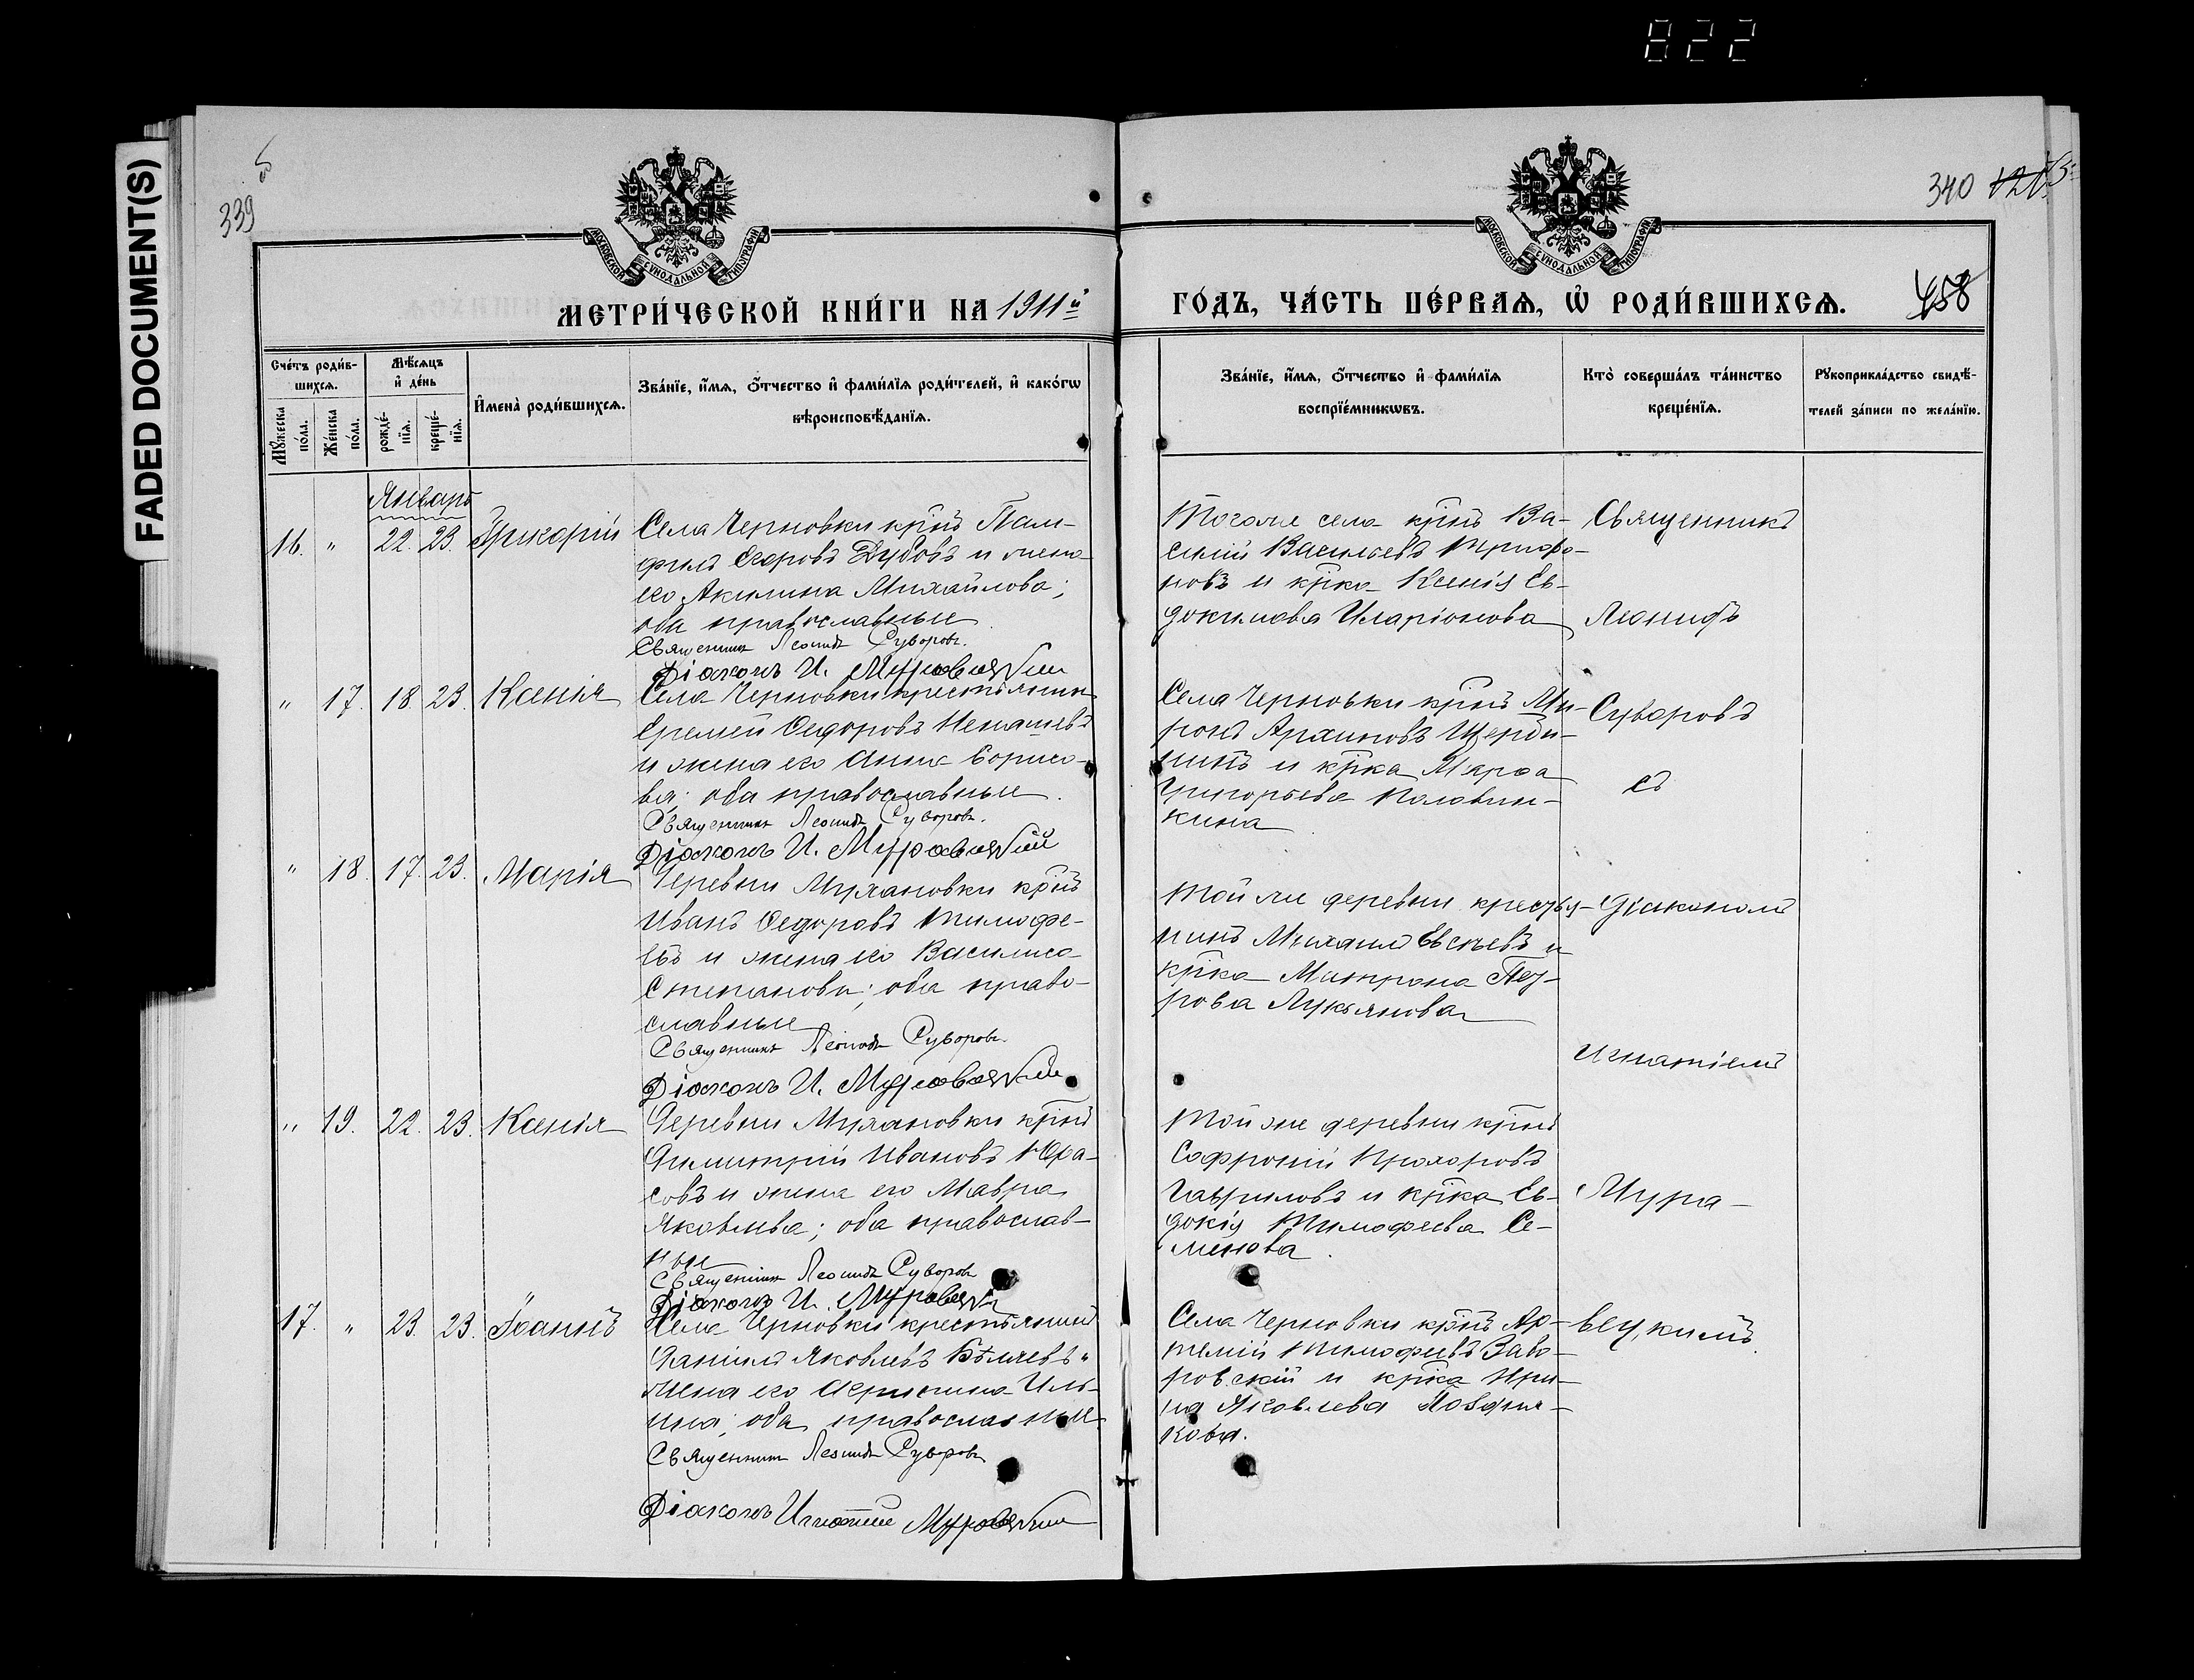 822
FADED DOCUMENT(S)
339
340
458
МОСКОВСКОЙ СѴНОДАЛЬНОЙ ТИПОГРАФІИ
МОСКОВСКОЙ СѴНОДАЛЬНОЙ ТИПОГРАФІИ
МЕТРИ́ЧЕСКОЙ КНИ́ГИ НА 1911й
ГО́ДЪ, ЧА́СТЬ ПЕ́РВАѦ, Ѽ РОДИ́ВШИХСѦ.
Сче́тъ роди́в-
шихсѧ.
Мꙋ́жеска по́ла.
Же́нска по́ла.
Мѣ́сѧцъ
и҆ де́нь
рожде́-
нїѧ.
креще́-
нїѧ.
И҆мена̀ роди́вшихсѧ.
Зва́нїе, и҆́мѧ, ѻ҆́тчество и҆ фами́лїѧ роди́телей, и҆ како́гѡ
вѣроисповѣ́данїѧ.
Зва́нїе, и҆́мѧ, ѻ҆́тчество и҆ фами́лїѧ
воспрїе́мникѡвъ.
Кто̀ соверша́лъ та́инство
креще́нїѧ.
Рꙋкоприкла́дство свидѣ́-
телей за́писи по жела́нїю.
Январь
16. " 22. 23. Григорій
Села Черновки крнъ Пам-
филъ Егоровъ Дубовъ и жена
его Акилина Михайлова;
оба православные
Священникъ Леонидъ Суворовъ.
Діаконъ И. Муравецкій
Тогоже села крнъ Ва-
силій Васильевъ Трифо-
новъ и крка Ксенія Ев-
докимова Иларіонова
Священникъ
Леонидъ
" 17. 18. 23. Ксенія
Села Черновки крестьянинъ
Еремей Федоровъ Ненашевъ
и жена его Анна Борисо-
ва; оба православные.
Священникъ Леонидъ Суворовъ.
Діаконъ И. Муравецкій
Села Черновки крнъ Ми-
ронъ Архиповъ Щерби-
нинъ и крка Марѳа
Григорьева Половин-
кина
Суворовъ
съ
" 18. 17. 23. Марія
Деревни Мухановки крнъ
Иванъ Федоровъ Тимофе-
евъ и жена его Василиса
Степанова; оба право-
славные
Священникъ Леонидъ Суворовъ
Діаконъ И. Муравецкій
Той же деревни крестья-
нинъ Михаилъ Евсѣевъ и
крка Матрона Пет-
рова Лукьянова
діакономъ
Игнатіемъ
" 19. 22. 23. Ксенія
Деревни Мухановки крнъ
Димитрій Ивановъ Юра-
совъ и жена его Мавра
Яковлева; оба православ-
ные
Священникъ Леонидъ Суворовъ
Діаконъ И. Муравецкій
Той же деревни крнъ
Софроній Прохоровъ
Гавриловъ и крка Ев-
докія Тимофеева Се-
менова.
Мура-
17. " 23. 23. Іоаннъ
Села Черновки крестьянинъ
Даніилъ Яковлевъ Бѣляевъ и
жена его Агрипина Иль-
ина; оба православные.
Священникъ Леонидъ Суворовъ
Діаконъ Игнатій Муравецкій
Села Черновки крнъ Ар-
темій Тимофеевъ Заво-
ровскій и крка Ири-
на Яковлева Поздня-
кова.
вецкимъ.